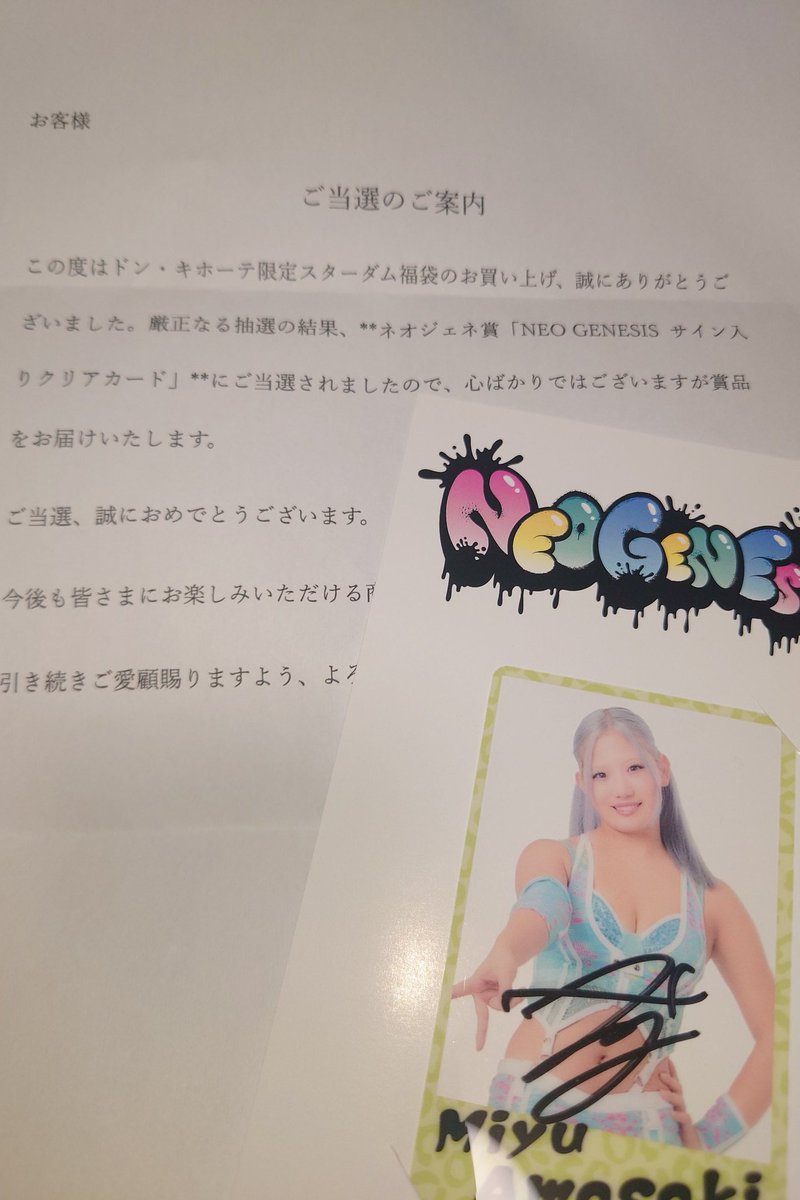 お客様
ご当選のご案内
この度はドン・キホーテ限定スターダム福袋のお買い上げ、誠にありがとうご
ざいました。厳正なる抽選の結果、**ネオジェネ賞「NEO GENESIS サイン入
りクリアカード」**にご当選されましたので、心ばかりではございますが賞品
をお届けいたします。
ご当選、誠におめでとうございます。
今後も皆さまにお楽しみいただける
引き続きご愛顧賜りますよう、よ
NEOGENES
Miyu
Awasaki